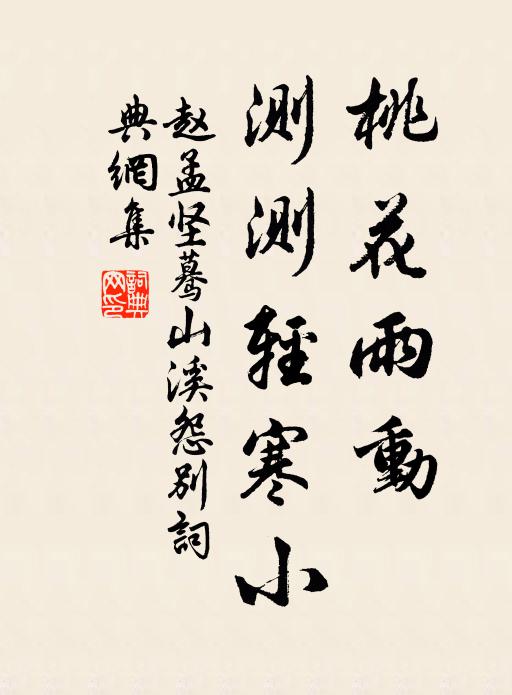 桃花雨動
測測輕寒小
赵孟坚蓦山溪怨别詞
典網集
詞典網印